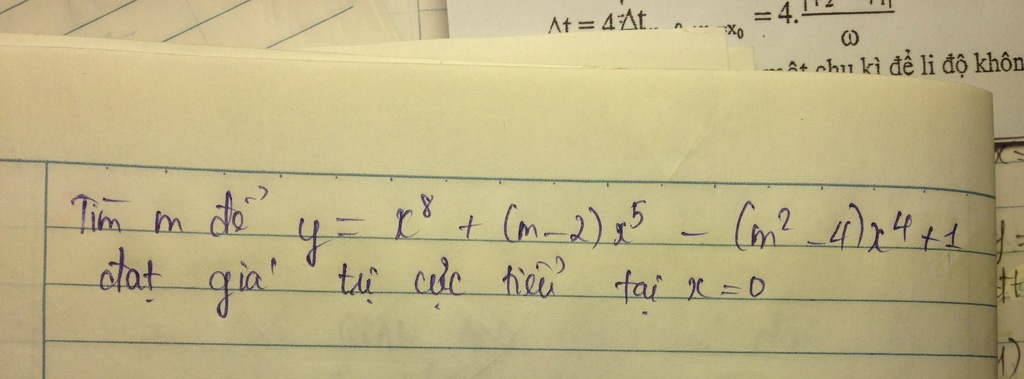 Δt = 4.Δt
x₀ = 4.
ω
chu kì để li độ khôn
Tìm m để y = x⁸ + (m-2)x⁵ - (m² -4)x⁴ +1
đạt giá trị cực tiểu tại x = 0